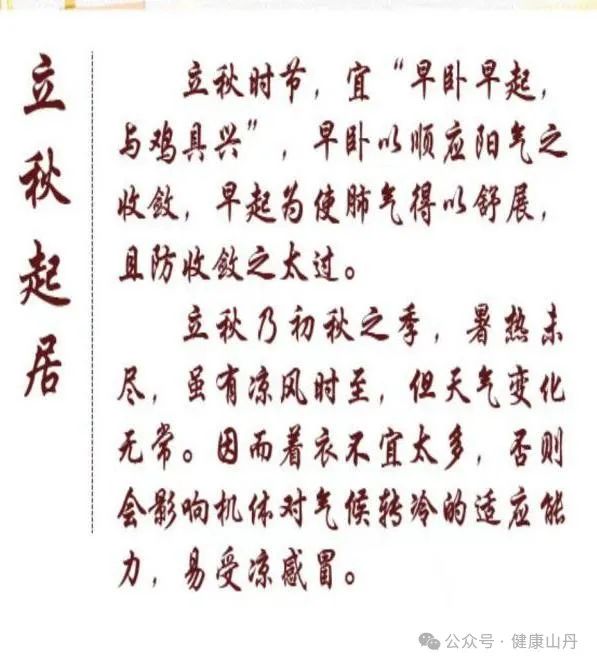 立秋起居
立秋时节，宜“早卧早起，
与鸡具兴”，早卧以顺应阳气之
收敛，早起为使肺气得以舒展，
且防收敛之太过。
立秋乃初秋之季，暑热未
尽，虽有凉风时至，但天气变化
无常。因而着衣不宜太多，否则
会影响机体对气候转冷的适应能
力，易受凉感冒。
公众号·健康山丹